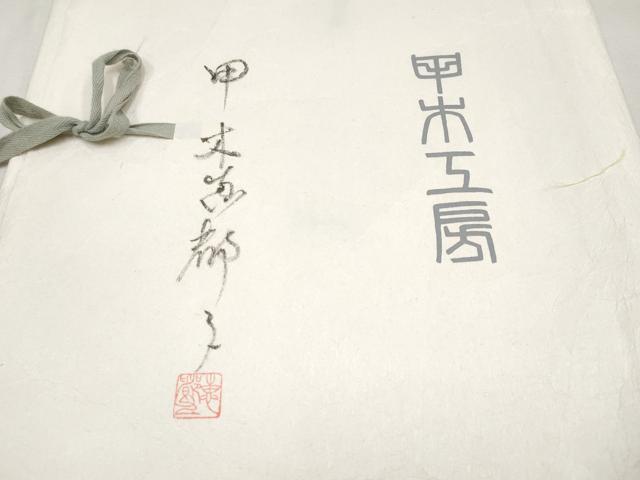 甲木工房
甲木恵都子